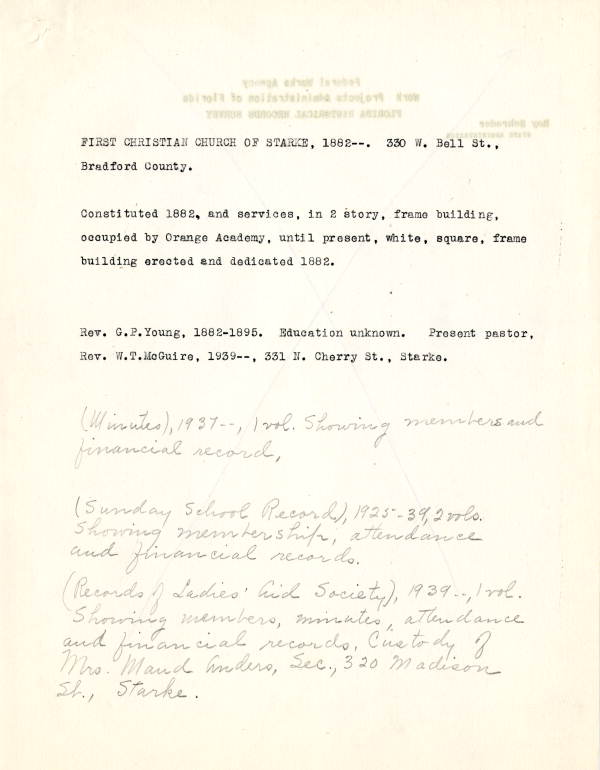 Federal Works Agency
Work Projects Administration of Florida
FLORIDA HISTORICAL RECORDS SURVEY
Roy Schroder
STATE ADMINISTRATOR
FIRST CHRISTIAN CHURCH OF STARKE, 1882--. 330 W. Bell St.,
Bradford County.
Constituted 1882, and services, in 2 story, frame building,
occupied by Orange Academy, until present, white, square, frame
building erected and dedicated 1882.
Rev. G.P.Young, 1882-1895. Education unknown. Present pastor,
Rev. W.T.McGuire, 1939--, 331 N. Cherry St., Starke.
(Minutes), 1937--, 1 vol. Showing members and
financial record,
(Sunday School Record), 1925-39, 2 vols.
Showing membership, attendance
and financial records.
(Records of Ladies' Aid Society), 1939--, 1 vol.
Showing members, minutes, attendance
and financial records. Custody of
Mrs. Maud Anders, Sec., 320 Madison
St., Starke.